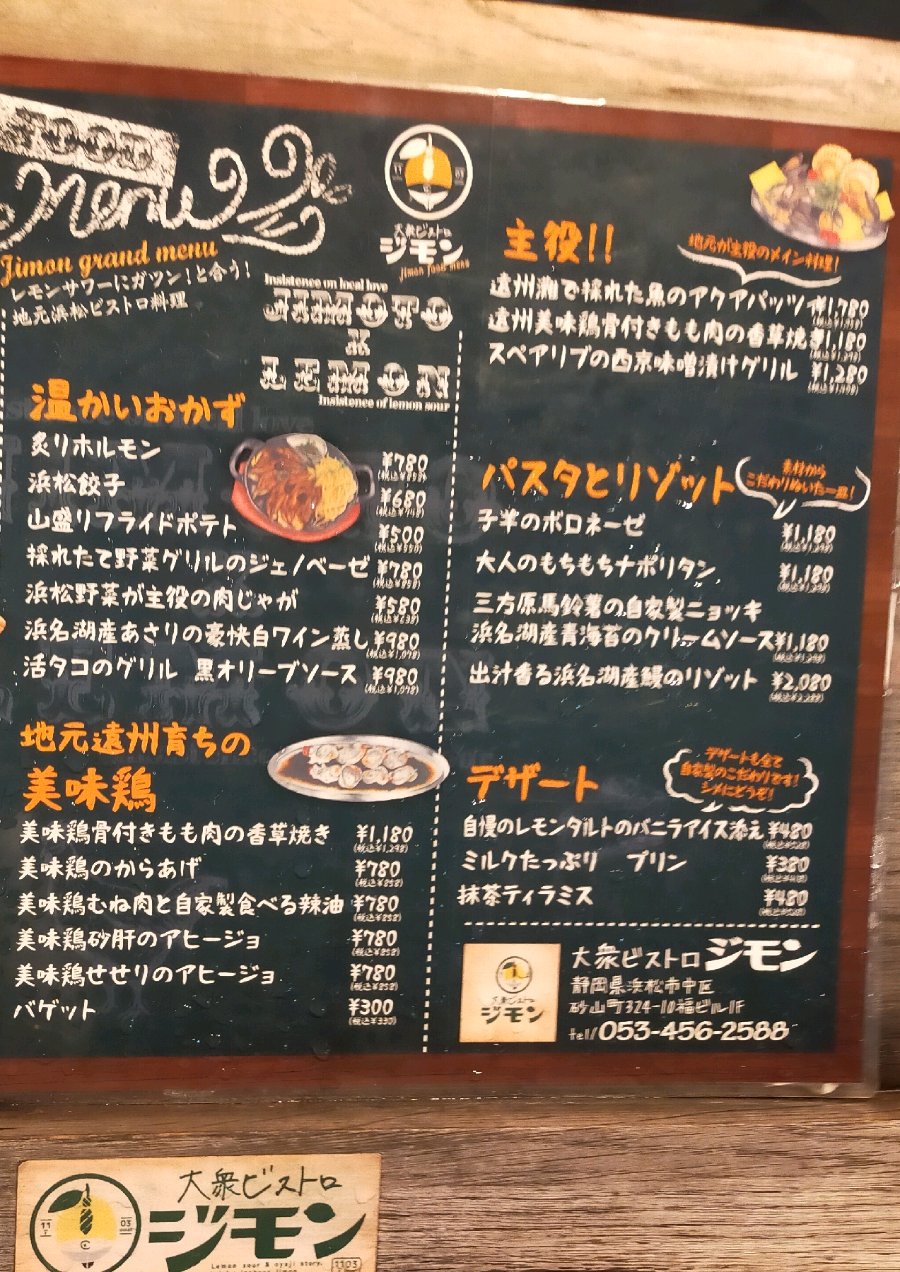 FOOD
Menu
Jimon grand menu
レモンサワーにガツン！と合う！
地元浜松ビストロ料理
11
03
大衆ビストロ
ジモン
jimon food menu
Insistence on local love
JIMOTO
X
LEMON
Insistence of lemon sour
温かいおかず
炙りホルモン ¥780
(税込¥858)
浜松餃子 ¥680
(税込¥748)
山盛りフライドポテト ¥500
(税込¥550)
採れたて野菜グリルのジェノベーゼ ¥780
(税込¥858)
浜松野菜が主役の肉じゃが ¥580
(税込¥638)
浜名湖産あさりの豪快白ワイン蒸し ¥980
(税込¥1,078)
活タコのグリル 黒オリーブソース ¥980
(税込¥1,078)
地元遠州育ちの
美味鶏
美味鶏骨付きもも肉の香草焼き ¥1,180
(税込¥1,298)
美味鶏のからあげ ¥780
(税込¥858)
美味鶏むね肉と自家製食べる辣油 ¥780
(税込¥858)
美味鶏砂肝のアヒージョ ¥780
(税込¥858)
美味鶏せせりのアヒージョ ¥780
(税込¥858)
バゲット ¥300
(税込¥330)
主役!!
地元が主役のメイン料理！
遠州灘で採れた魚のアクアパッツァ ¥1,780
(税込¥1,958)
遠州美味鶏骨付きもも肉の香草焼き ¥1,180
(税込¥1,298)
スペアリブの西京味噌漬けグリル ¥1,280
(税込¥1,408)
パスタとリゾット
素材から
こだわりぬいた一皿！
子羊のボロネーゼ ¥1,180
(税込¥1,298)
大人のもちもちナポリタン ¥1,180
(税込¥1,298)
三方原馬鈴薯の自家製ニョッキ
浜名湖産青海苔のクリームソース ¥1,180
(税込¥1,298)
出汁香る浜名湖産鰻のリゾット ¥2,080
(税込¥2,288)
デザート
デザートも全て
自家製のこだわりです！
シメにどうぞ！
自慢のレモンタルトのバニラアイス添え ¥480
(税込¥528)
ミルクたっぷり プリン ¥380
(税込¥418)
抹茶ティラミス ¥480
(税込¥528)
大衆ビストロ
ジモン
大衆ビストロ ジモン
静岡県浜松市中区
砂山町324-10福ビル1F
tel/053-456-2588
11
03
大衆ビストロ
ジモン
Lemon sour & oyaji story.
1103